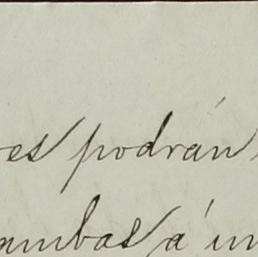 es podrán
ambas á un